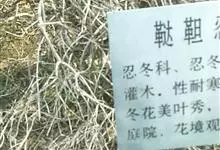 鞑靼忍
忍冬科、忍冬
灌木，性耐寒
冬花美叶秀，
庭院、花境观